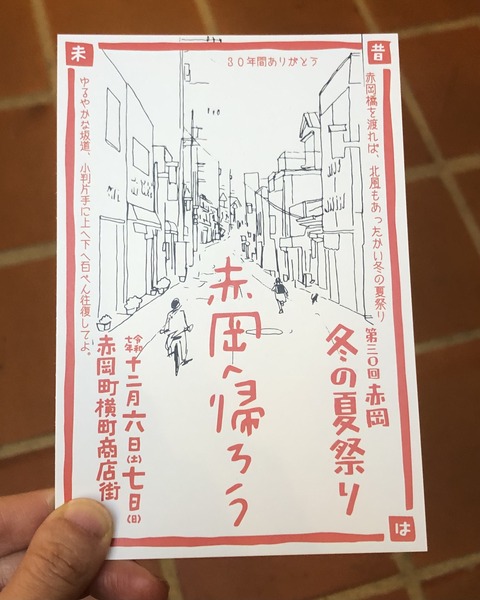 30年間ありがとう
昔
は
未
赤岡橋を渡れば、北風もあったかい冬の夏祭り
第三〇回 赤岡
冬の夏祭り
赤岡へ帰ろう
令和七年 十二月六日(土)七日(日)
赤岡町横町商店街
ゆるやかな坂道、小判片手に上へ下へ百ぺん往復してよ。